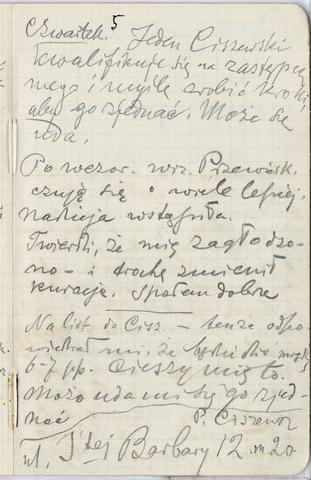 Czwartek. 5 Jeden Ciszewski
kwalifikuje się na zastępcę
mego i myślę zrobić kroki,
aby go zjednać. Może się
uda.
Po wczor. wiz. Przewósk.
czuję się o wiele lepiej.
nadzieja wstąpiła.
Twierdzi, że mię zagłodzo-
no - i trochę zmienił
kurację. Spałem dobrze
Na list do Cisz. - tenże odpo-
wiedział mi, że będzie dziś między
6-7 pp. Cieszy mię to.
Może uda mi się go zjed-
nać P. Ciszew
ul. Barbary 12 m 20